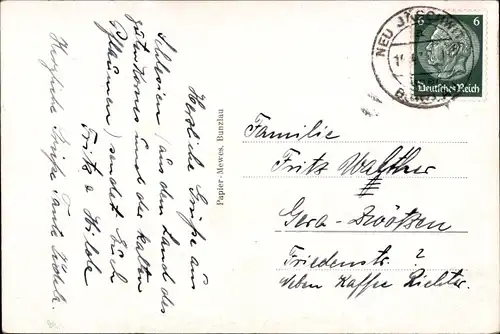 Herzliche Grüße aus
Schlesien (aus dem Land des
guten Kornes und der kalten
Pflaumen) sendet Euch
Fritz & Hilde
Herzliche Grüße Tante
Papier-Mewes, Bunzlau
NEU JÄSCHWITZ
6 6
Deutsches Reich
Familie
Fritz Walther
Gera-Zwötzen
Friedenstr. 2
Neben Kaffee Richter.